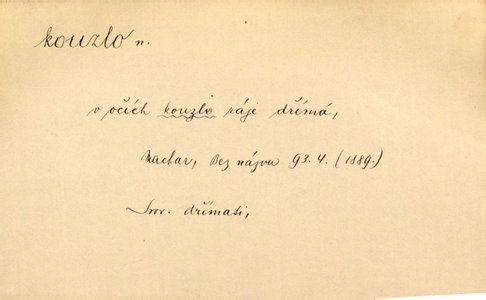 kouzlo n.
v očích kouzlo ráje dřímá,
Machar, Bez názvu 93. 4. (1889.)
Srov. dřímati,